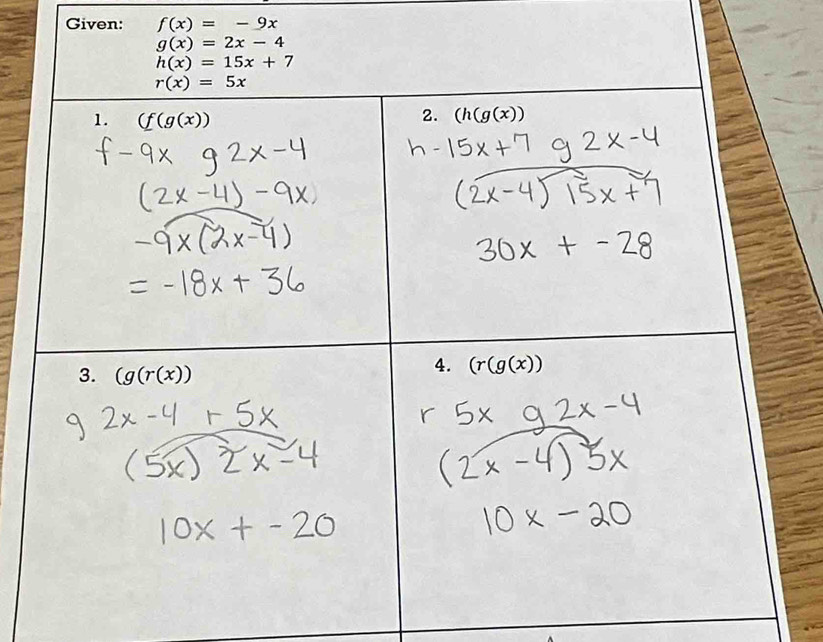 Given: f(x) = - 9x
g(x) = 2x - 4
h(x) = 15x + 7
r(x) = 5x
1. (f(g(x))
f -9x g 2x-4
(2x-4) -9x)
-9x(2x-4)
= -18x + 36
2. (h(g(x))
h -15x+7 g 2x-4
(2x-4) 15x+7
30x + -28
3. (g(r(x))
g 2x-4 r 5x
(5x) 2x-4
10x + -20
4. (r(g(x))
r 5x g 2x-4
(2x-4) 5x
10x -20